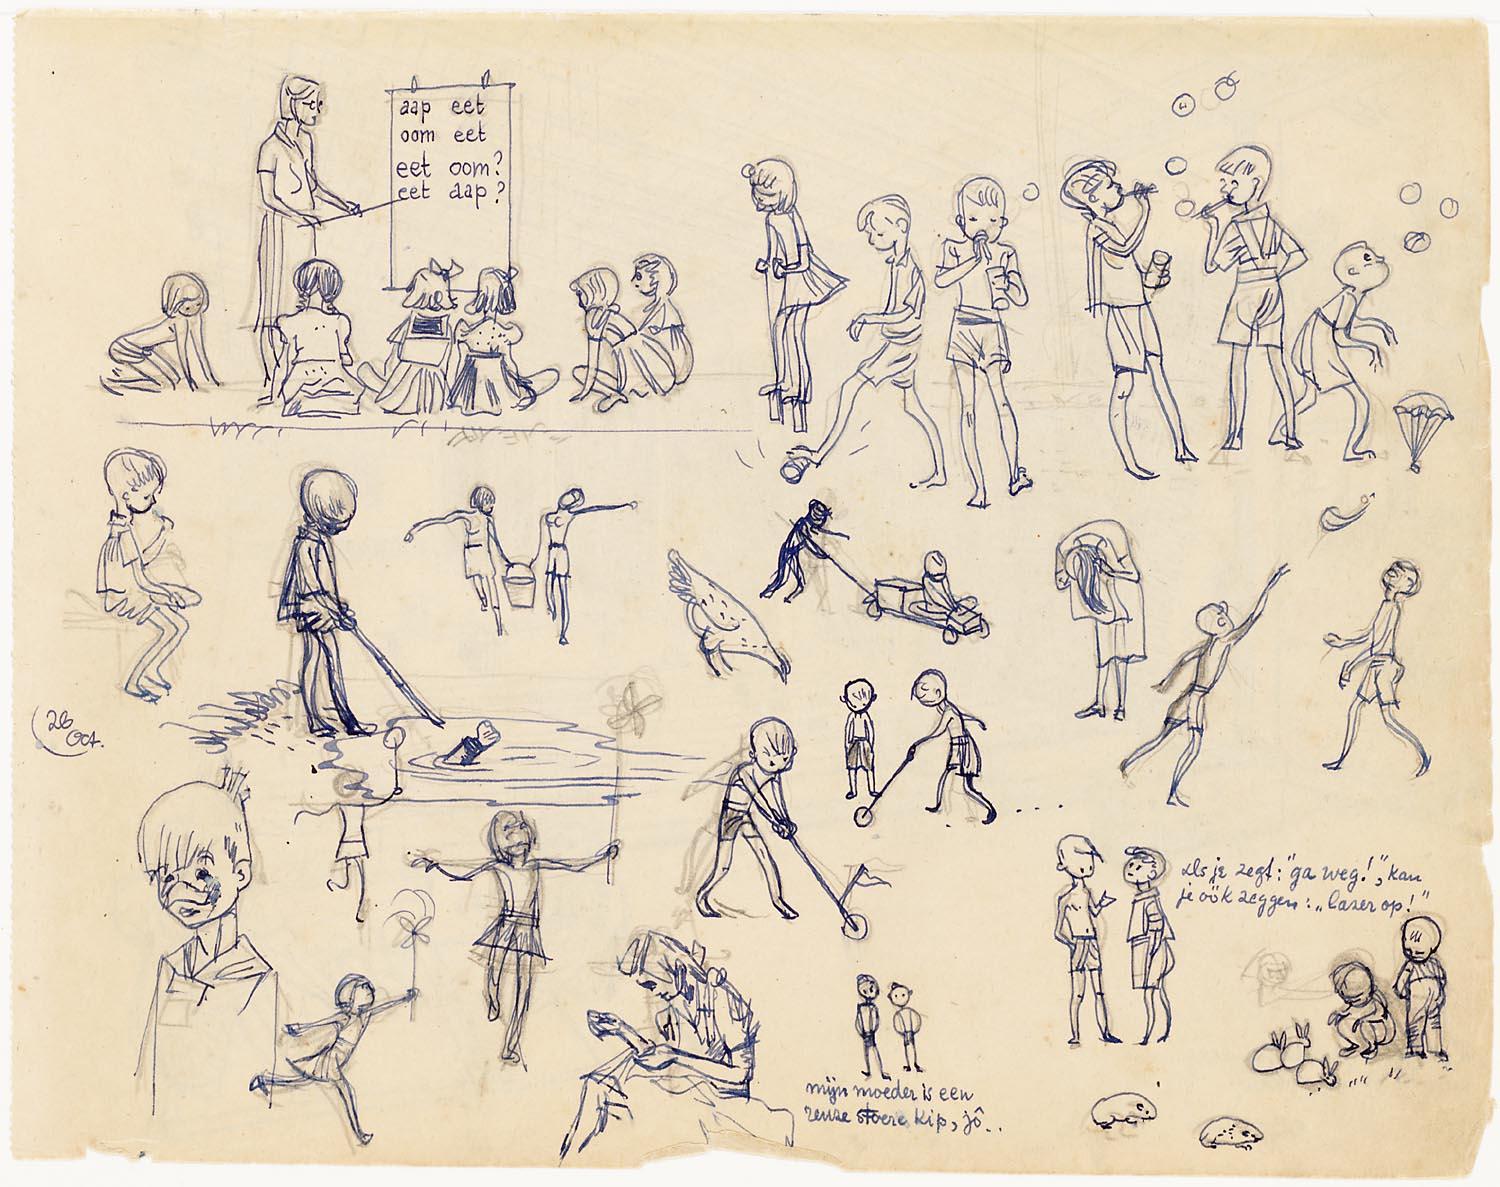 aap eet
oom eet
eet oom?
eet aap?
26
Oct.
Als je zegt: "ga weg!", kan
je oök zeggen: „lazer op!"
mijn moeder is een
reuze stoere kip, jô..